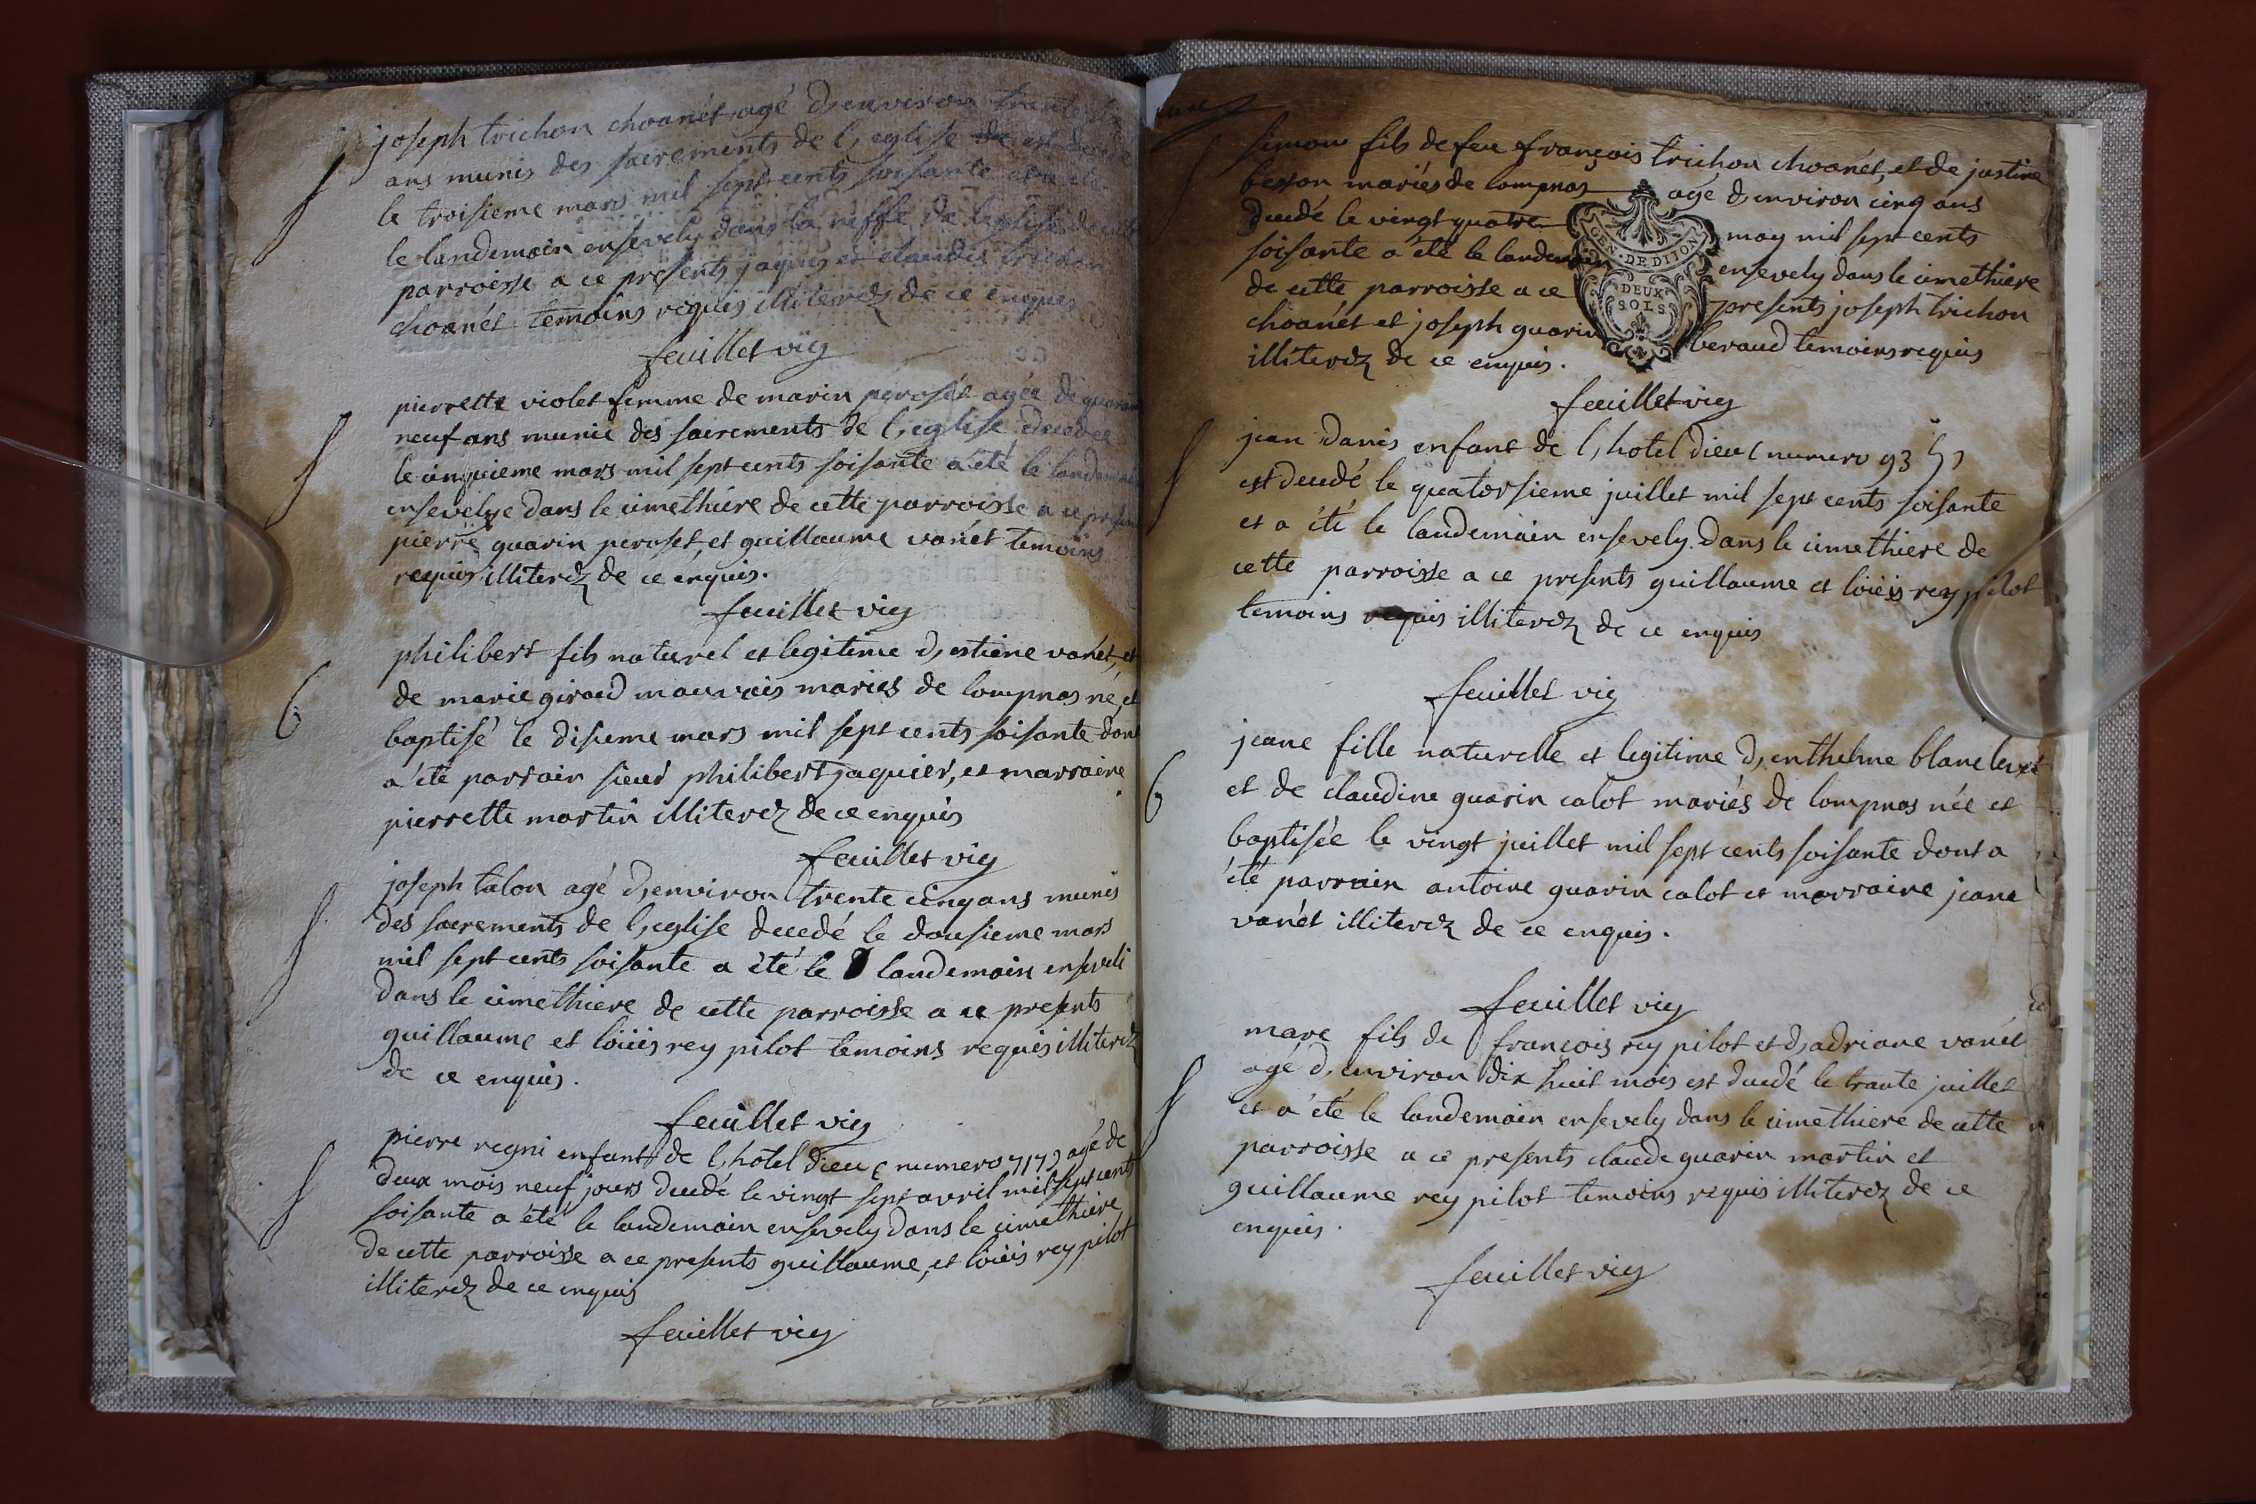 joseph trichon choanét agé d,environ trante
ans munis des sacrements de l,eglise de est decede
le troisieme mars mil sept cents soisante et a ete
le landemain ensevely dans la neffe de l'eglise de cette
parroisse a ce presents jaques et claudis trichon
choanét temoins requis illiterez de ce enquis
feuillet vic
pierrette violet femme de marin peroset agée de quarante
neuf ans munie des sacrements de l,eglise decedee
le cinquieme mars mil sept cents soisante a été le landemain
ensevelye dans le cimethiere de cette parroisse a ce presents
pierre guarin peroset, et guillaume vanét temoins
requis illiterez de ce enquis.
feuillet vic
philibert fils naturel et legitime d,estiene vanét, et
de marie giraud mauvais mariés de lompnas né, et
baptisé le disieme mars mil sept cents soisante dont
a été parrain sieur philibert jaquier, et marraine
pierrette martin illiterez de ce enquis
feuillet vic
joseph talon agé d,environ trente cinq ans munis
des sacrements de l,eglise decedé le dousieme mars
mil sept cents soisante a été le landemain enseveli
dans le cimethiere de cette parroisse a ce presents
guillaume et loüis rey pilot temoins requis illiterez
de ce enquis.
feuillet vic
pierre regni enfant de l,hotel dieu ( numero 717 ) agé de
deux mois neuf jours decedé le vingt sept avril mil sept cents
soisante a été le landemain ensevely dans le cimethiere
de cette parroisse a ce presents guillaume, et loüis rey pilot
illiterez de ce enquis
feuillet vic
simon fils de feu françois trichon choanét, et de justine
besson mariés de lompnas agé d,environ cinq ans
decedé le vingt quatre may mil sept cents
soisante a été le landemain ensevely dans le cimethiere
de cette parroisse a ce presents joseph trichon
choanét et joseph guarin beraud temoins requis
illiterez de ce enquis.
GEN. DE DIJON
DEUX
SOLS
feuillet vic
jean danis enfant de l,hotel dieu ( numero 93 )
est decedé le quatorsieme juillet mil sept cents soisante
et a été le landemain ensevely dans le cimethiere de
cette parroisse a ce presents guillaume et loüis rey pilot
temoins requis illiterez de ce enquis
feuillet vic
jeane fille naturelle et legitime d,enthelme blanc
et de claudine guarin calot mariés de lompnas née et
baptisée le vingt juillet mil sept cents soisante dont a
été parrain antoine guarin calot et marraine jeane
vanét illiterez de ce enquis.
feuillet vic
marc fils de françois rey pilot et d,adriane vanét
agé d,environ dix huit mois est decedé le trante juillet
et a été le landemain ensevely dans le cimethiere de cette
parroisse a ce presents claude guarin martin et
guillaume rey pilot temoins requis illiterez de ce
enquis.
feuillet vic